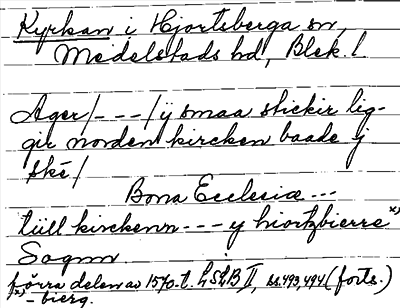 Kyrkan i Hjortsberga sn,
Medelstads hd, Blek. l.
Ager/---/ÿ smaa stickir lig-
gir norden kircken baade ÿ
ské/
Bona Ecclesiæ ---
tüll kirckenn --- y hiortzbierre x)
Sognn
förra delen av 1570-t. LSLB II, ss. 493, 494 (forts.)
x) -bierg.